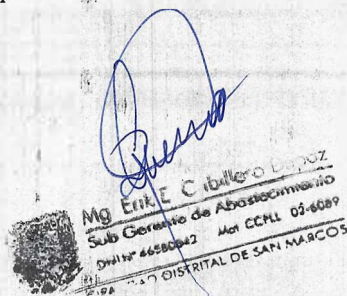 Mg Erik E Caballero Depaz
Sub Gerente de Abastecimiento
DNI N° 46580042 Mat CCPLL 02-6089
DISTRITAL DE SAN MARCOS